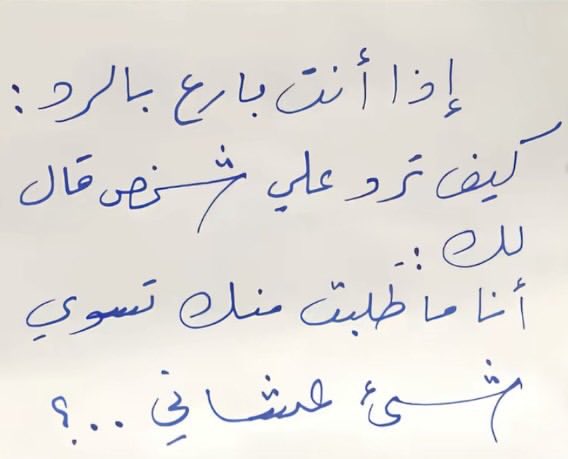 إذا أنت بارع بالرد :
كيف ترد علي شخص قال
لك :
أنا ما طلبت منك تسوي
شئ علشاني ...؟